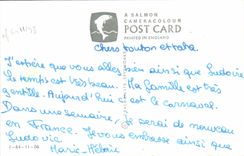 A SALMON
CAMERACOLOUR
POST CARD
PRINTED IN ENGLAND
Chers tonton et tata
J'espère que vous allez bien ainsi que Ludovic
le temps est très beau. La famille est très
gentille. Aujourd'hui c'est le carnaval.
Dans une semaine, je serai de nouveau
en France. Je vous embrasse ainsi que
Ludovic
Marie-Hélène